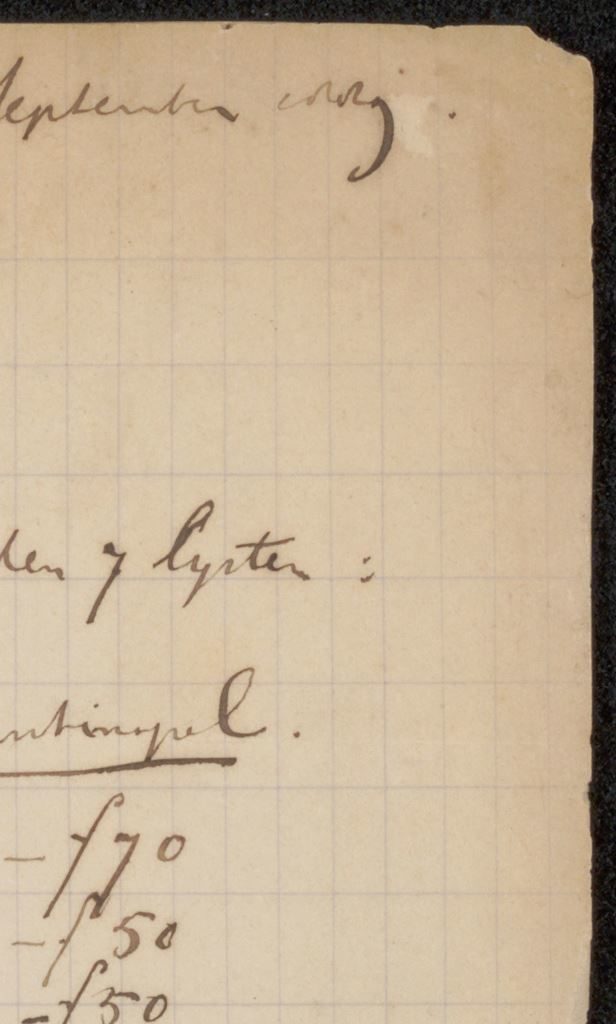 September
den 7 lysten :
ntinopel.
- f 70
- f 50
- f 50